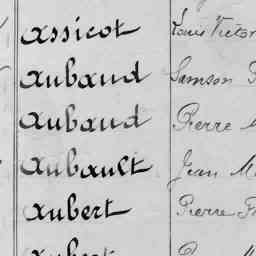 Assicot Louis Victor
Aubaud Samson
Aubaud Pierre
Aubault Jean
Aubert Pierre
Aubert